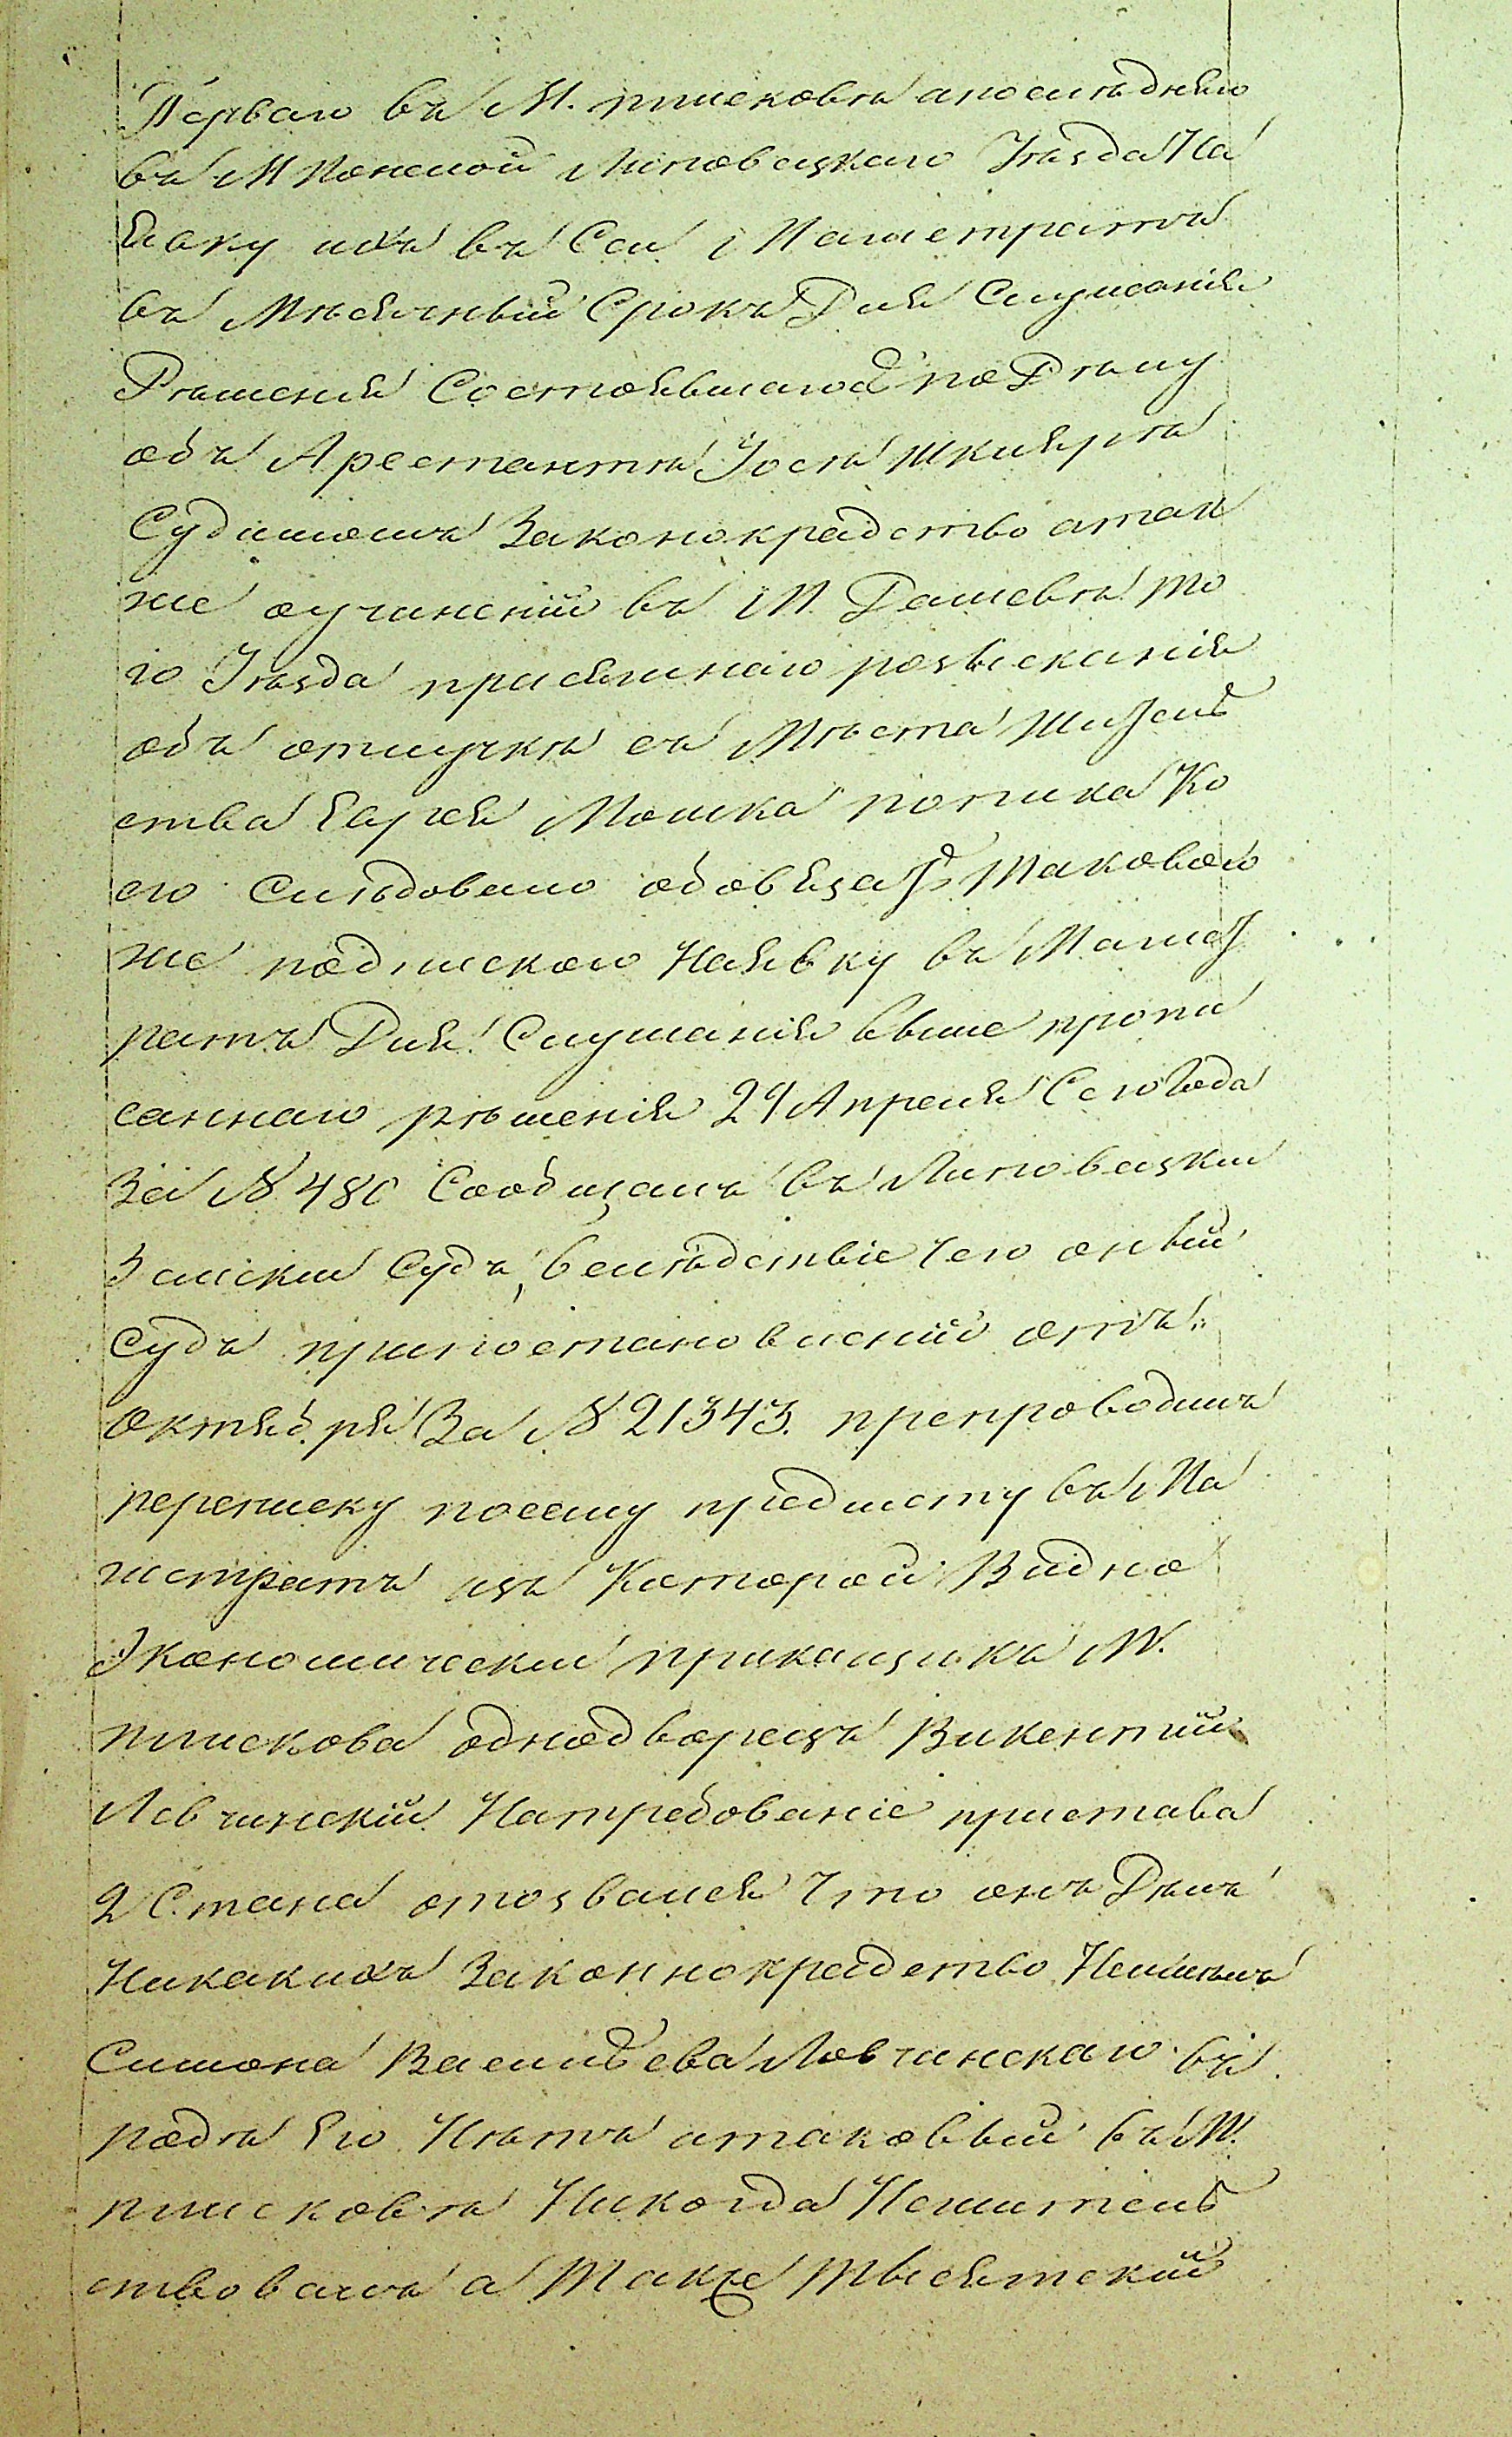 Перваго въ М. пписковѣ апослѣднего
въ М Конелой Липовецкаго Уѣзда На
Евку ихъ въ Сей Магистратъ
въ Мѣсечный Срокъ Для Слушанія
Рѣшенія Состоявшагося по Дѣлу
объ Арестантѣ Іосѣ шклярѣ
Судимомъ Законокрадство атак
же оучиненіи въ М. Дашевѣ то
го Уѣзда присяжнаго розысканія
объ отлучкѣ съ Мѣста Жител
ства Еврея Мошка попика Ко
его Слѣдовало обовязать таковою
же подпискою Наявку въ Магист
ратъ Для Слушанія выше пропи
саннаго рѣшенія 29 Апреля Сего Года
За № 480 Сообщалъ въ Липовецкій
Земскій Судъ, вслѣдствіе чего оный
Судъ приностановленіи отъ
Октября За № 21343. препроводилъ
переписку посему предмету въ Ма
гистратъ изъ Которой Видно
Экономическій прикащикъ М.
ппискова однодворецъ Викентій
Левчинскій Натребованіе пристава
2 Стана отозвался Что онъ Дѣлъ
Никакихъ Законнокрадство Неимѣлъ
Симона Васильева Левчинскаго въ
родѣ Его Нѣтъ итаковый въ М.
пписковѣ Никогда Нежител
ствовалъ а Также тысятскій